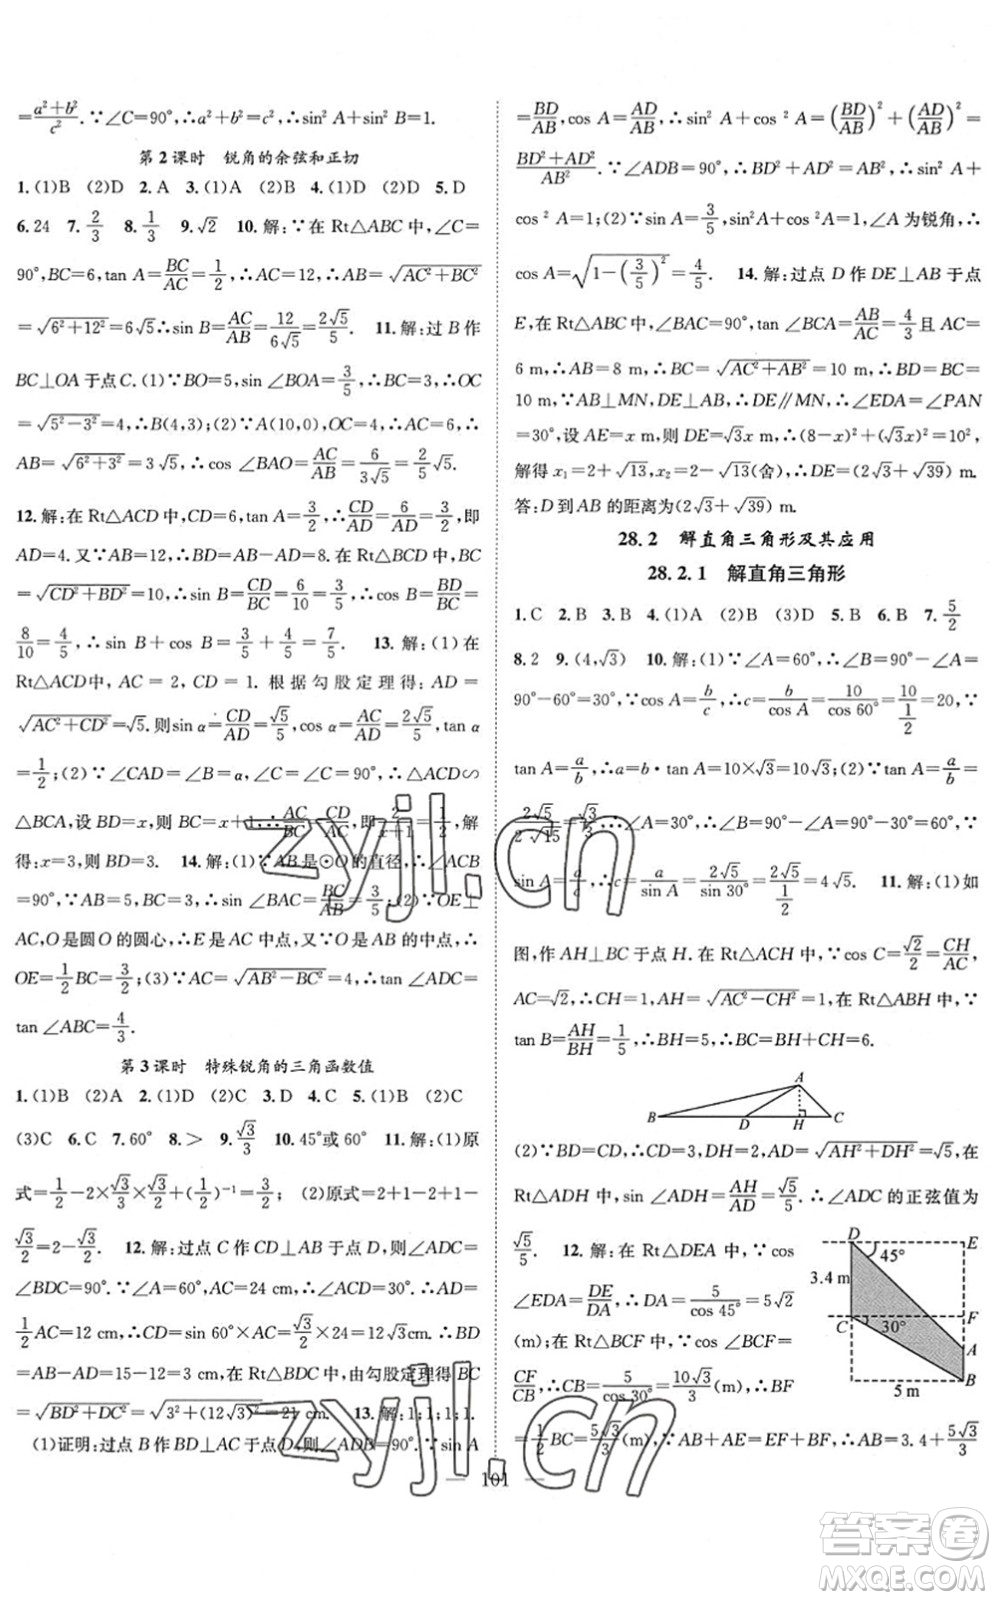 =\frac{a²+b²}{c²}.∵∠C=90°,∴a²+b²=c²,∴sin² A+sin² B=1.
第2课时 锐角的余弦和正切
1.(1)B (2)D 2.A 3.(1)A (2)B 4.(1)D (2)D 5.D
6.24 7.\frac{2}{3} 8.\frac{1}{3} 9.√2 10.解:∵在Rt△ABC中,∠C=
90°,BC=6,tan A=\frac{BC}{AC}=\frac{1}{2},∴AC=12,∴AB=√(AC²+BC²)
=√(6²+12²)=6√5∴sin B=\frac{AC}{AB}=\frac{12}{6√5}=\frac{2√5}{5}. 11.解:过B作
BC⊥OA于点C.(1)∵BO=5,sin∠BOA=\frac{3}{5},∴BC=3,∴OC
=√(5²−3²)=4,∴B(4,3);(2)∵A(10,0),OC=4,∴AC=6,∴
AB=√(6²+3²)=3√5,∴cos∠BAO=\frac{AC}{AB}=\frac{6}{3√5}=\frac{2}{5}√5.
12.解:在Rt△ACD中,CD=6,tan A=\frac{3}{2},∴\frac{CD}{AD}=\frac{6}{AD}=\frac{3}{2},即
AD=4.又∵AB=12,∴BD=AB−AD=8.在Rt△BCD中,BC=
√(CD²+BD²)=10,∴sin B=\frac{CD}{BC}=\frac{6}{10}=\frac{3}{5},cos B=\frac{BD}{BC}=
\frac{8}{10}=\frac{4}{5},∴sin B+cos B=\frac{3}{5}+\frac{4}{5}=\frac{7}{5}. 13.解:(1)在
Rt△ACD中,AC=2,CD=1.根据勾股定理得:AD=
√(AC²+CD²)=√5.则sin α=\frac{CD}{AD}=\frac{√5}{5},cos α=\frac{AC}{AD}=\frac{2√5}{5},tan α
=\frac{1}{2};(2)∵∠CAD=∠B=α,∠C=∠C=90°,∴△ACD∽
△BCA,设BD=x,则BC=x+1,∴\frac{AC}{BC}=\frac{CD}{AC},即\frac{2}{x+1}=\frac{1}{2},解
得:x=3,则BD=3. 14.解:(1)∵AB是⊙O的直径,∴∠ACB
=90°,∵AB=5,BC=3,∴sin∠BAC=\frac{BC}{AB}=\frac{3}{5};(2)∵OE⊥
AC,O是圆O的圆心,∴E是AC中点,又∵O是AB的中点,∴
OE=\frac{1}{2}BC=\frac{3}{2};(3)∵AC=√(AB²−BC²)=4,∴tan∠ABC=
tan∠ABC=\frac{4}{3}.
第3课时 特殊锐角的三角函数值
1.(1)B (2)A 2.(1)D (2)C 3.D 4.C 5.(1)B (2)C
(3)C 6.C 7.60° 8.> 9.\frac{√3}{3} 10.45°或60° 11.解:(1)原
式=\frac{1}{2}−2×\frac{√3}{2}×\frac{√3}{2}+(\frac{1}{2})⁻¹=\frac{3}{2}; (2)原式=2+1−2+1−
\frac{√3}{2}=2−\frac{√3}{2}. 12.解:过点C作CD⊥AB于点D,则∠ADC=
∠BDC=90°.∵AC=24 cm,∠A=60°,∴∠ACD=30°.∴AD=
\frac{1}{2}AC=12 cm,CD=AC·sin 60°=\frac{√3}{2}×24=12√3 cm.∴BD
=AB−AD=15−12=3 cm,在Rt△BDC中,由勾股定理得BC
=√(BD²+DC²)=√(3²+(12√3)²)=21 cm. 13.解:1;1;1;1.
(1)证明:过点B作BD⊥AC于点D,则∠ADB=90°.∵sin A
=\frac{BD}{AB},cos A=\frac{AD}{AB},∴sin² A+cos² A=(\frac{BD}{AB})²+(\frac{AD}{AB})²=
\frac{BD²+AD²}{AB²},∵∠ADB=90°,∴BD²+AD²=AB²,∴sin² A+
cos² A=1;(2)∵sin A=\frac{3}{5},sin² A+cos² A=1,∠A为锐角,∴
cos A=√(1−(\frac{3}{5})²)=\frac{4}{5}. 14.解:过点D作DE⊥AB于点
E,在Rt△ABC中,∠BAC=90°,tan∠BCA=\frac{AB}{AC}=\frac{4}{3}且AC=
6 m,∴AB=8 m,∴BD=BC=√(AC²+AB²)=
10 m,∵AB⊥MN,DE⊥AB,∴DE∥MN,∴∠EDA=∠PAN
=30°,设AE=x m,则DE=√3x m,∴(8−x)²+(√3x)²=10²,
解得x₁=2+√13,x₂=2−√13(舍),∴DE=(2√3+√39) m.
答:D到AB的距离为(2√3+√39) m.
28.2 解直角三角形及其应用
28.2.1 解直角三角形
1.C 2.B 3.B 4.(1)A (2)B (3)D 5.B 6.B 7.\frac{5}{2}
8.2 9.(4,√3) 10.解:(1)∵∠A=60°,∴∠B=90°−∠A=
90°−60°=30°,∵cos A=\frac{b}{c},∴c=\frac{b}{cos A}=\frac{10}{cos 60°}=\frac{10}{\frac{1}{2}}=20,∵
tan A=\frac{a}{b},∴a=b·tan A=10×√3=10√3;(2)∵tan A=\frac{a}{b}=
\frac{2√5}{2√15}=\frac{√3}{3},∴∠A=30°,∴∠B=90°−∠A=90°−30°=60°,∵
sin A=\frac{a}{c},∴c=\frac{a}{sin A}=\frac{2√5}{sin 30°}=\frac{2√5}{\frac{1}{2}}=4√5. 11.解:(1)如
图,作AH⊥BC于点H.在Rt△ACH中,∵cos C=\frac{√2}{2}=\frac{CH}{AC},
AC=√2,∴CH=1,AH=√(AC²−CH²)=1,在Rt△ABH中,∵
tan B=\frac{AH}{BH}=\frac{1}{5},∴BH=5,∴BC=BH+CH=6.
A
B D H C
(2)∵BD=CD,∴CD=3,DH=2,AD=√(AH²+DH²)=√5,在
Rt△ADH中,sin∠ADH=\frac{AH}{AD}=\frac{√5}{5}.∴∠ADC的正弦值为
\frac{√5}{5}. 12.解:在Rt△DEA中,∵cos
∠EDA=\frac{DE}{DA},∴DA=\frac{5}{cos 45°}=5√2
(m);在Rt△BCF中,∵cos∠BCF=
\frac{CF}{CB},∴CB=\frac{5}{cos 30°}=\frac{10√3}{3}(m),∴BF
=\frac{1}{2}BC=\frac{5√3}{3}(m),∵AB+AE=EF+BF,∴AB=3.4+\frac{5√3}{3}
D E
45°
3.4 m
C F
30°
A
B
5 m
101
zyjl.cn
zyjl.cn
答案卷
MXQE.COM